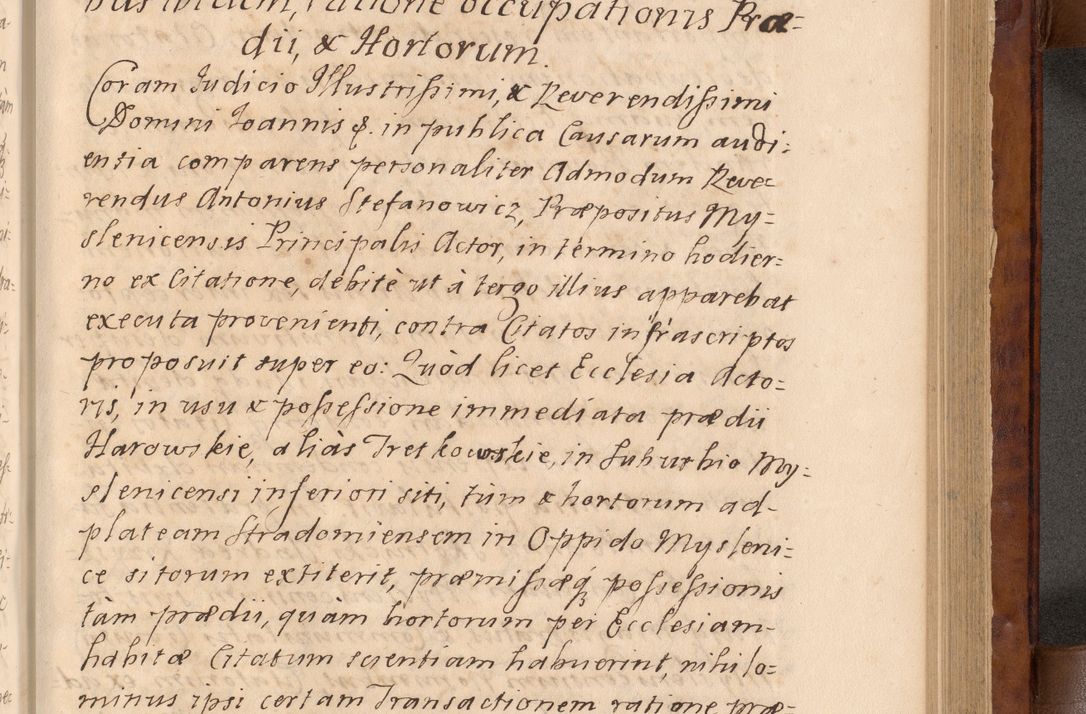 bus ibidem, ratione occupationis Præ=
dii, & Hortorum.
Coram Judicio Illustrissimi, & Reverendissimi
Domini Joannis &. in publica Causarum audi=
entia comparens personaliter Admodum Reve=
rendus Antonius Stefanowicz, Præpositus My=
slenicensis Principalis Actor, in termino hodier=
no ex Citatione, debitè ut à tergo illius apparebat
executa provenienti, contra Citatos infrascriptos
proposuit super eo: Quòd licet Ecclesia Acto=
ris, in usu & possessione immediata prædii
Harowskie, aliàs Tretkowskie, in Suburbio My=
slenicensi inferiori siti, tùm & hortorum ad-
plateam Stradomiensem in Oppido Mysleni=
ce sitorum extiterit, præmissæq́ possessionis
tàm prædii, quàm hortorum per Ecclesiam-
habitæ Citatum scientiam habuerint, nihilo=
minus ipsi certam Transactionem ratione præ-